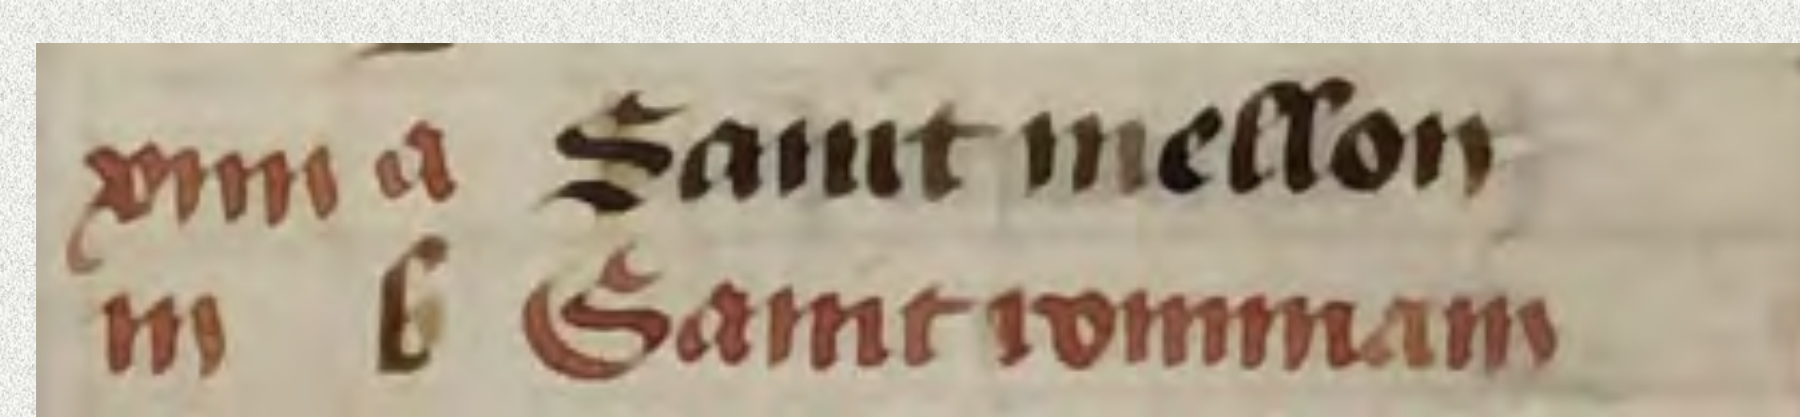 xiiii a Saint mellon
iii b Saint rommain